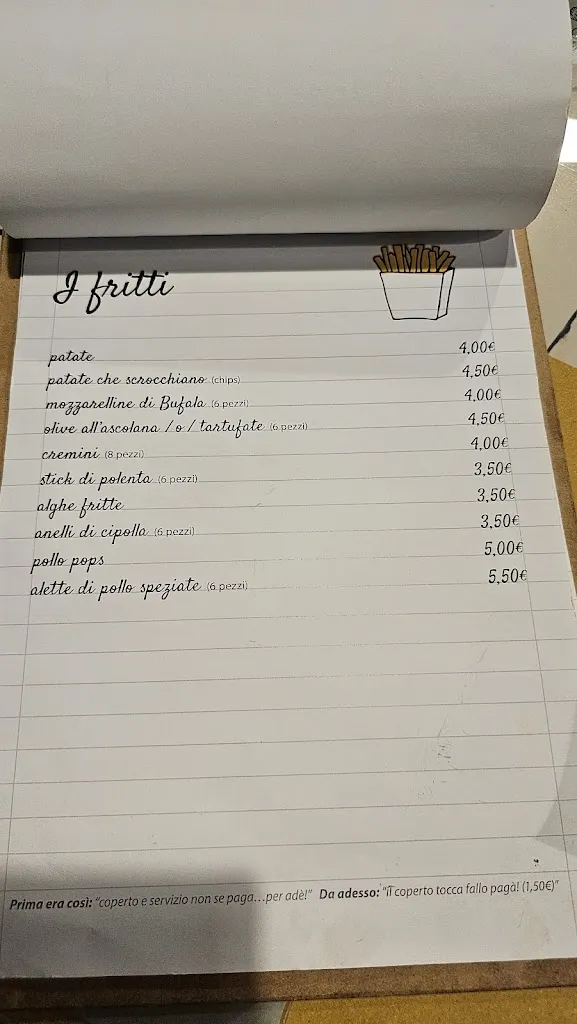 I fritti
patate 4,00€
patate che scrocchiano (chips) 4,50€
mozzarelline di Bufala (6 pezzi) 4,00€
olive all'ascolana /o/ tartufate (6 pezzi) 4,50€
cremini (8 pezzi) 4,00€
stick di polenta (6 pezzi) 3,50€
alghe fritte 3,50€
anelli di cipolla (6 pezzi) 3,50€
pollo pops 5,00€
alette di pollo speziate (6 pezzi) 5,50€
Prima era così: "coperto e servizio non se paga...per adè!" Da adesso: "il coperto tocca fallo pagà! (1,50€)"